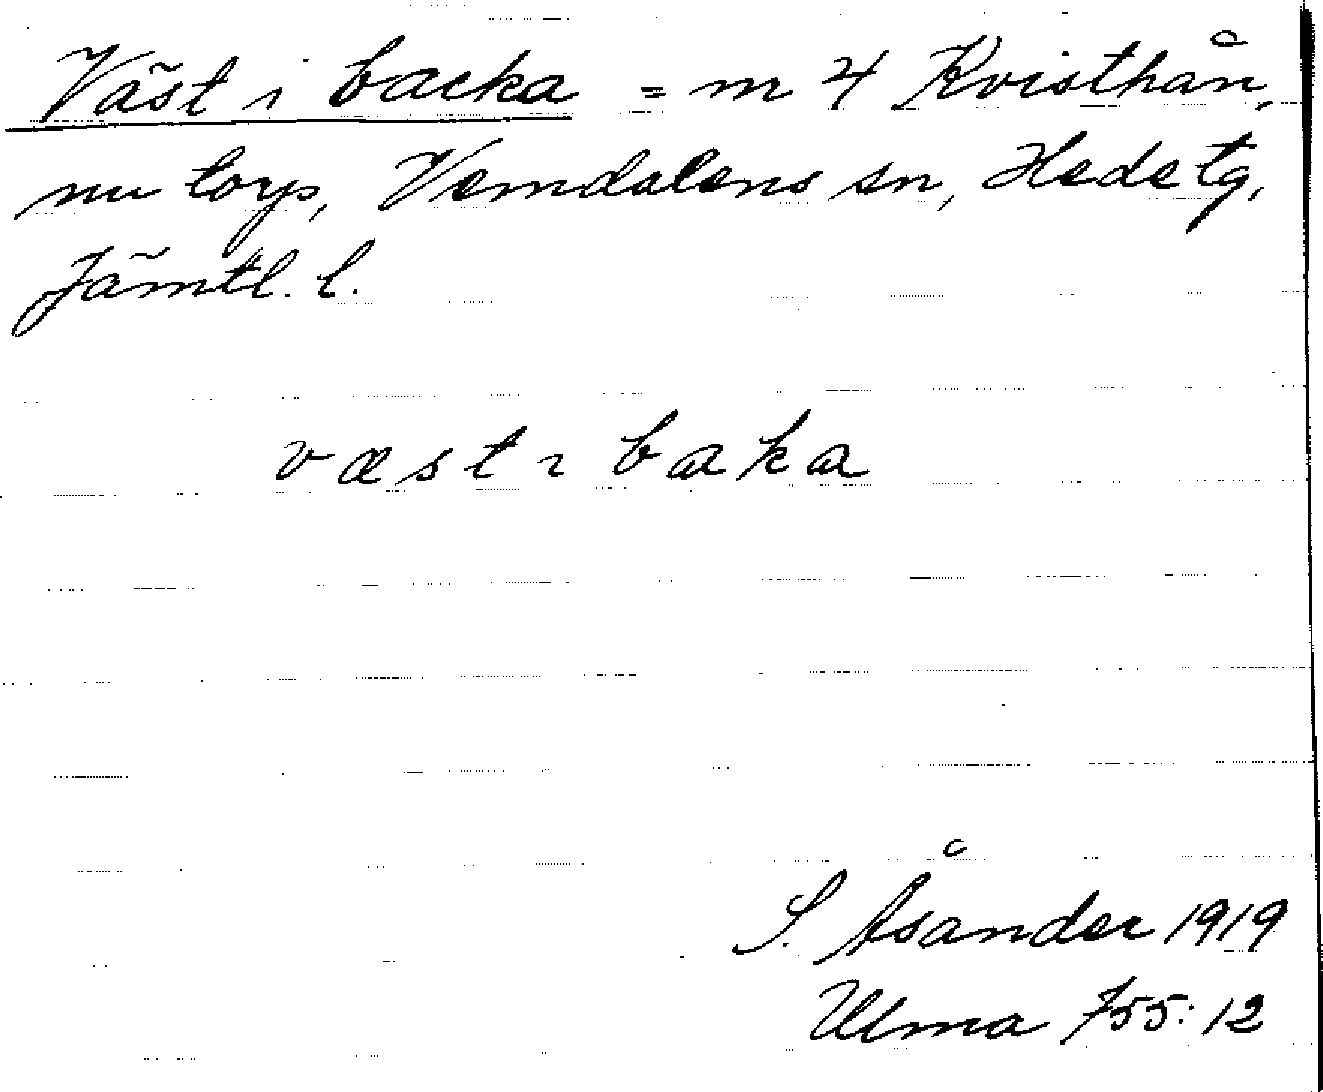 Väst i backa = m 4 Kvisthån,
nu torp, Vemdalens sn, Hede tg,
Jämtl. l.
væst ı baka
S. Åsander 1919
Ulma 755:12